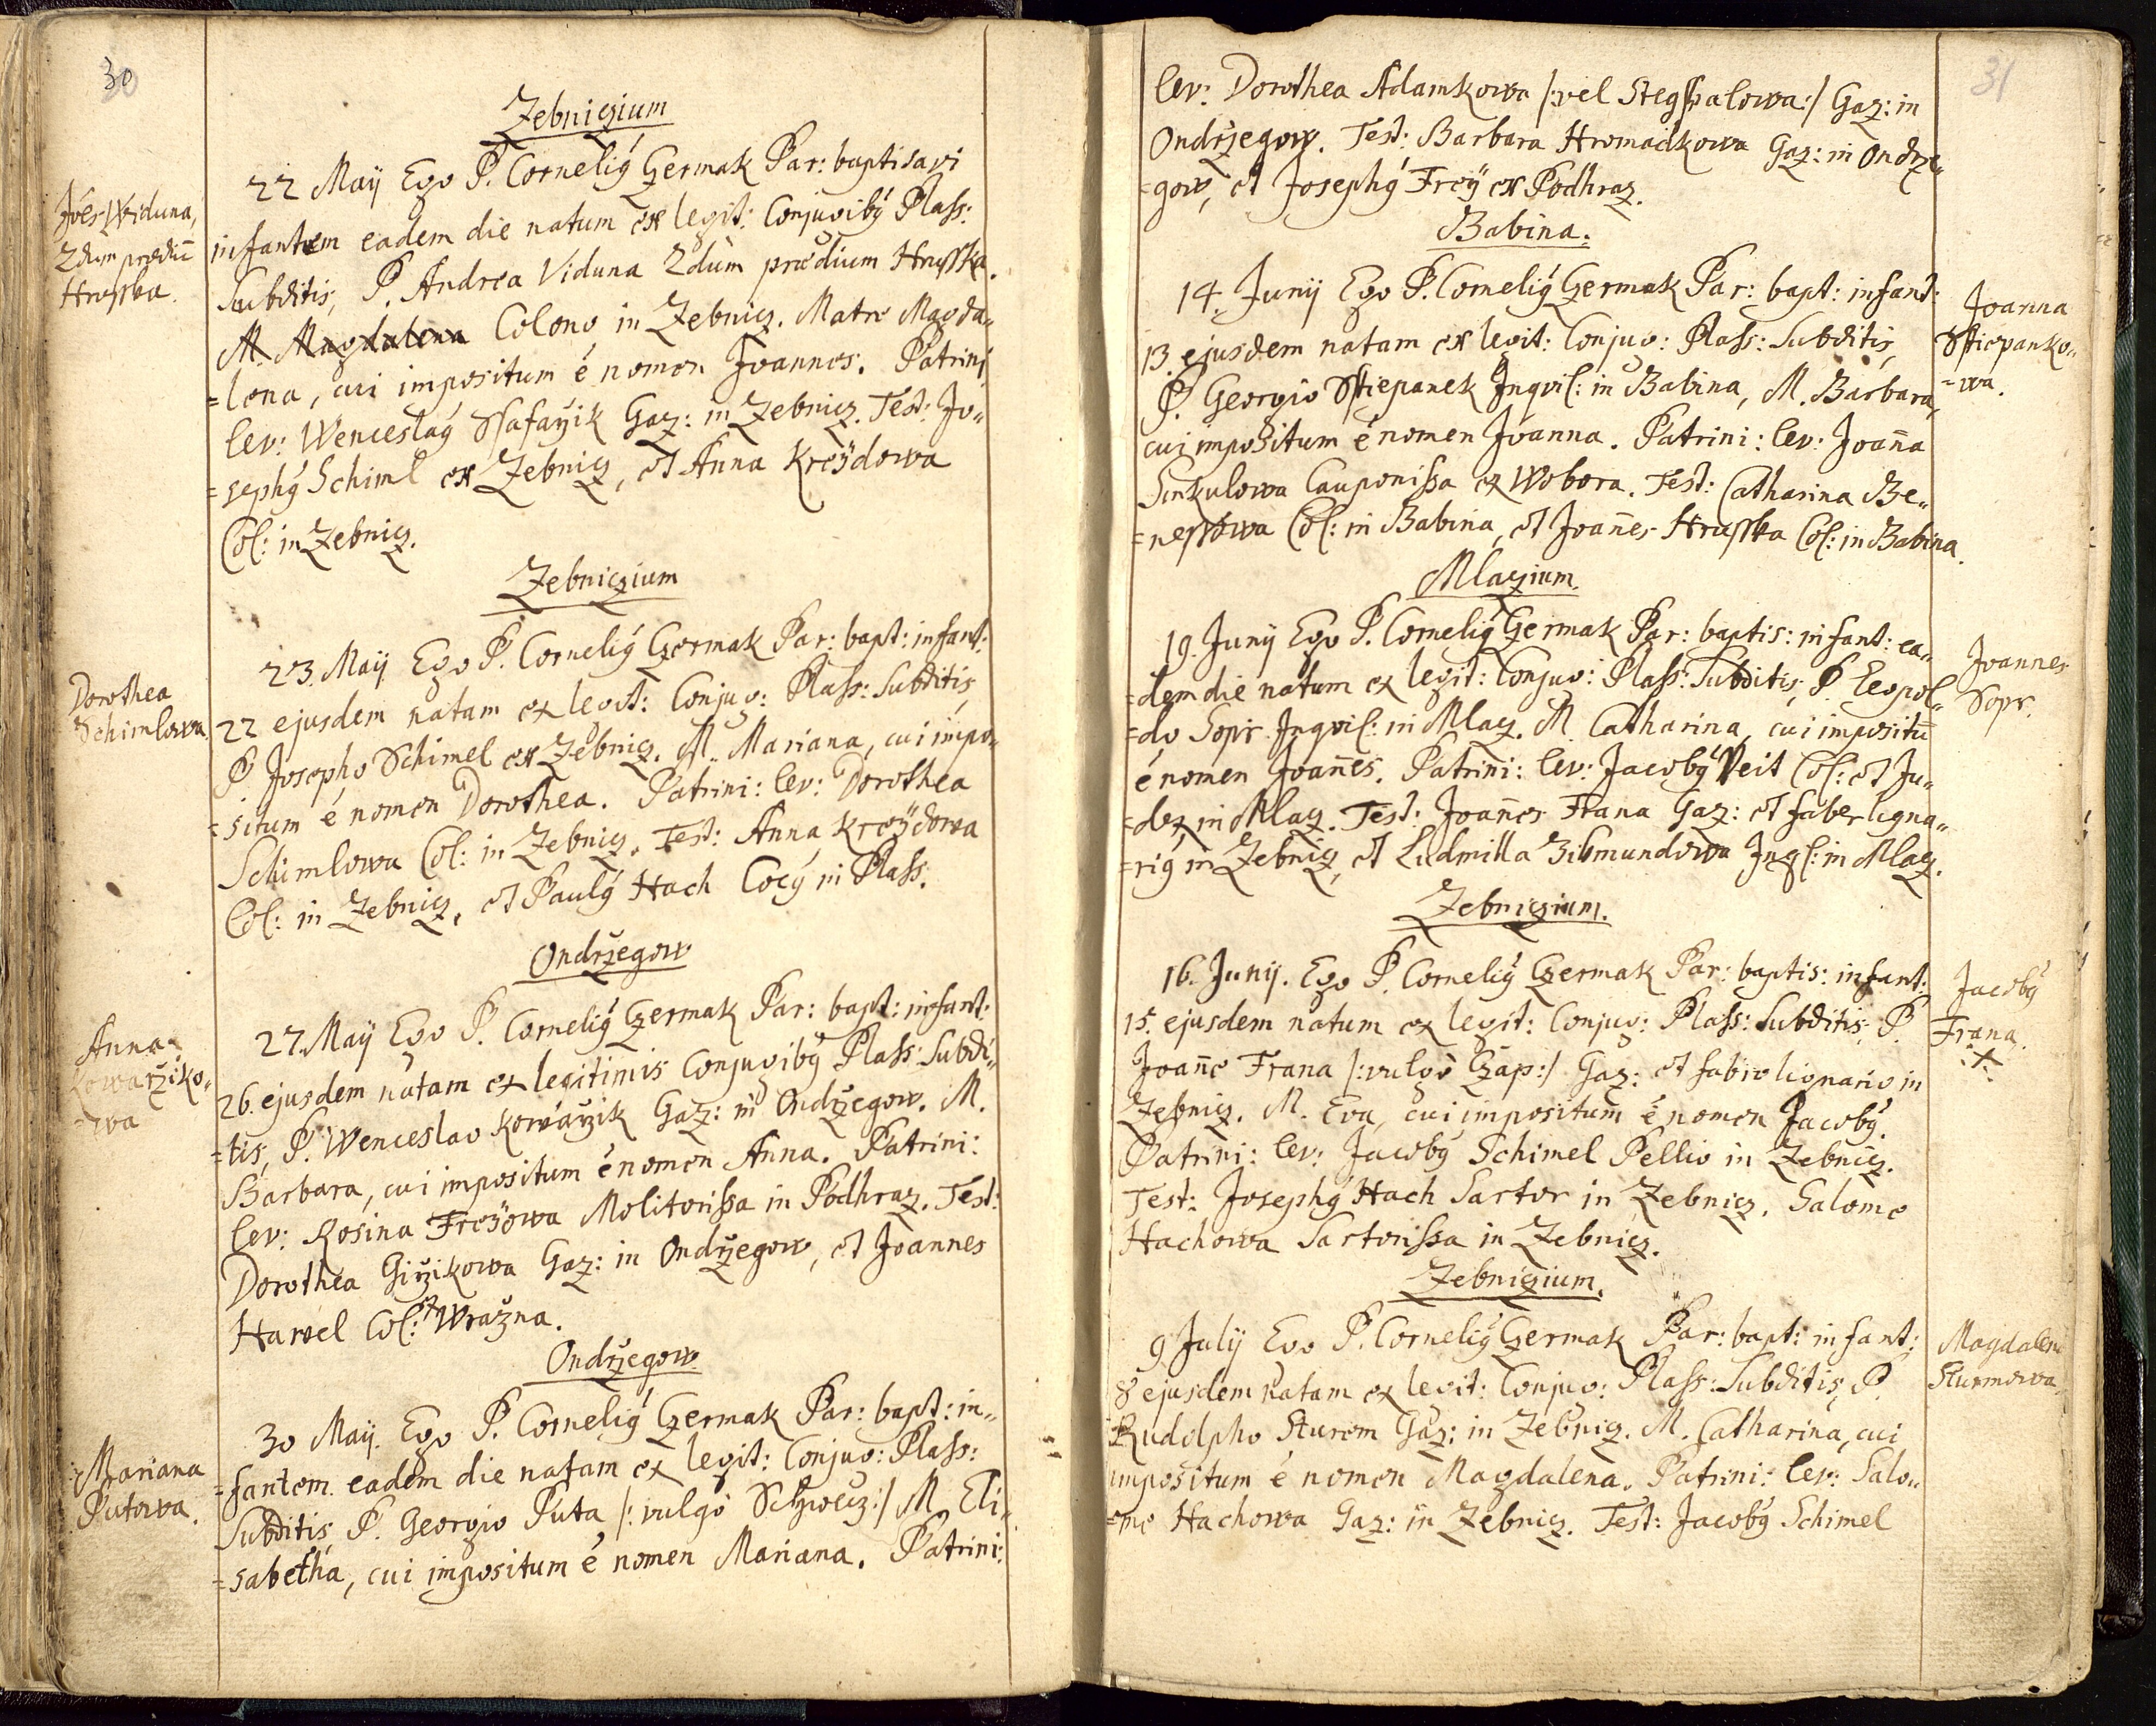 30
Zebniczium
Jōes Widuna,
2dum prædiū
Hrusska.
22 Maÿ Ego P. Cornelig Czermak Par: baptisavi
infantem eadem die natum ex legit: Conjugibg Plass:
Subditis, P. Andrea Viduna 2dum prædium Hrusska.
M. Magdalena Colono in Zebnicz. Matre Magda„
=lena, cui impositum ē nomen Joannes. Patrini
lev: Wenceslag Ssafařik Gaz: in Zebnicz. Test: Jo„
=sephg Schiml ex Zebnicz, et Anna Kreÿdowa
Col: in Zebnicz.
Zebniczium
Dorothea
Schimlowa.
23. Maÿ Ego P. Cornelig Czermak Par: bapt: infant:
22 ejusdem natam ex legit: Conjug: Plass: Subditis,
P. Josepho Schimel ex Zebnicz. M. Mariana, cui impo„
=situm ē nomen Dorothea. Patrini: lev: Dorothea
Schimlowa Col: in Zebnicz. Test: Anna Kreÿdowa
Col: in Zebnicz, et Paulg Hach Cocg in Plass.
Ondrzegow
Anna
Kowarziko„
=wa
27. Maÿ Ego P. Cornelig Czermak Par: bapt: infant:
26. ejusdem natam ex legitimis Conjugibg Plass: Subdi„
=tis, P. Wenceslao Kowařik Gaz: in Ondrzegow. M.
Barbara, cui impositum ē nomen Anna. Patrini:
lev: Rosina Freÿowa Molitorissa in Podhraz. Test:
Dorothea Giřikowa Gaz: in Ondrzegow, et Joannes
Hawel Col: ex Wražna.
Ondrzegow
Mariana
Putowa.
30 Maÿ. Ego P. Cornelig Czermak Par: bapt: in„
=fantem eadem die natam ex legit: Conjug: Plass:
Subditis, P. Georgio Puta /: vulgo Schwecz :/ M. Eli„
=sabetha, cui impositum ē nomen Mariana. Patrini:
31
lev: Dorothea Adamkowa /: vel Stegskalowa :/ Gaz: in
Ondrzegow. Test: Barbara Hromadkowa Gaz: in Ondrze„
=gow, et Josephg Freÿ ex Podhraz.
Babina.
14. Junÿ Ego P. Cornelig Czermak Par: bapt: infant:
13. ejusdem natam ex legit: Conjug: Plass: Subditis,
P. Georgio Sstiepanek Inqvil: in Babina, M. Barbara,
cui impositum ē nomen Joanna. Patrini: lev: Joan̄a
Sinkulowa Cauponissa ex Wobora. Test: Catharina Be„
=nessowa Col: in Babina, et Joan̄es Hrusska Col: in Babina.
Joanna
Sstiepanko„
=wa.
Mlaczium.
19. Junÿ Ego P. Cornelig Czermak Par: baptis: infant: ea„
=dem die natum ex legit: Conjug: Plass: Subditis, P. Leopol„
=do Sopr Inqvil: in Mlacz. M. Catharina, cui impositū
ē nomen Joan̄es. Patrini: lev: Jacobg Veit Col: et Ju„
=dex in Mlacz. Test: Joan̄es Frana Gaz: et faber ligna„
=rig in Zebnicz, et Ludmilla Zikmundowa Inql: in Mlacz.
Joannes
Sopr.
Zebniczium.
16. Junÿ. Ego P. Cornelig Czermak Par: baptis: infant:
15. ejusdem natum ex legit: Conjug: Plass: Subditis, P.
Joan̄e Frana /: vulgo Czap :/ Gaz: et fabro lignario in
Zebnicz. M. Eva, cui impositum ē nomen Jacobg.
Patrini: lev: Jacobg Schimel Pellio in Zebnicz.
Test: Josephg Hach Sartor in Zebnicz, Salome
Hachowa Sartorissa in Zebnicz.
Jacobg
Frana.
Zebniczium.
9 Julÿ Ego P. Cornelig Czermak Par: bapt: infant:
8 ejusdem natam ex legit: Conjug: Plass: Subditis, P.
Rudolpho Sturem Gaz: in Zebnicz. M. Catharina, cui
impositum ē nomen Magdalena. Patrini: lev: Salo„
=me Hachowa Gaz: in Zebnicz. Test: Jacobg Schimel
Magdalena
Sturmowa.